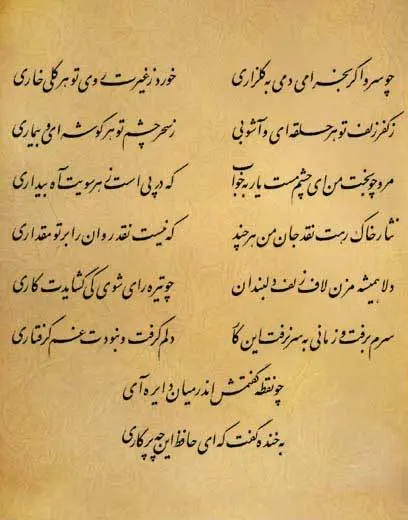 چو سرو اگر بخرامی دمی به گلزاری خورد ز غیرت روی تو هر گلی خاری
ز کفر زلف تو هر حلقه ای و آشوبی ز سحر چشم تو هر گوشه ای و بیماری
مرو چو بخت من ای چشم مست یار به خواب که در پی است ز هر سویت آه بیداری
نثار خاک رهت نقد جان من هر چند که نیست نقد روان را بر تو مقداری
دلا همیشه مزن لاف زلف دلبندان چو تیره رای شوی کی گشایدت کاری
سرم برفت و زمانی به سر نرفت این کار دلم گرفت و نبودت غم گرفتاری
چو نقطه گفتمش اندر میان دایره آی
به خنده گفت که ای حافظ این چه پرگاری